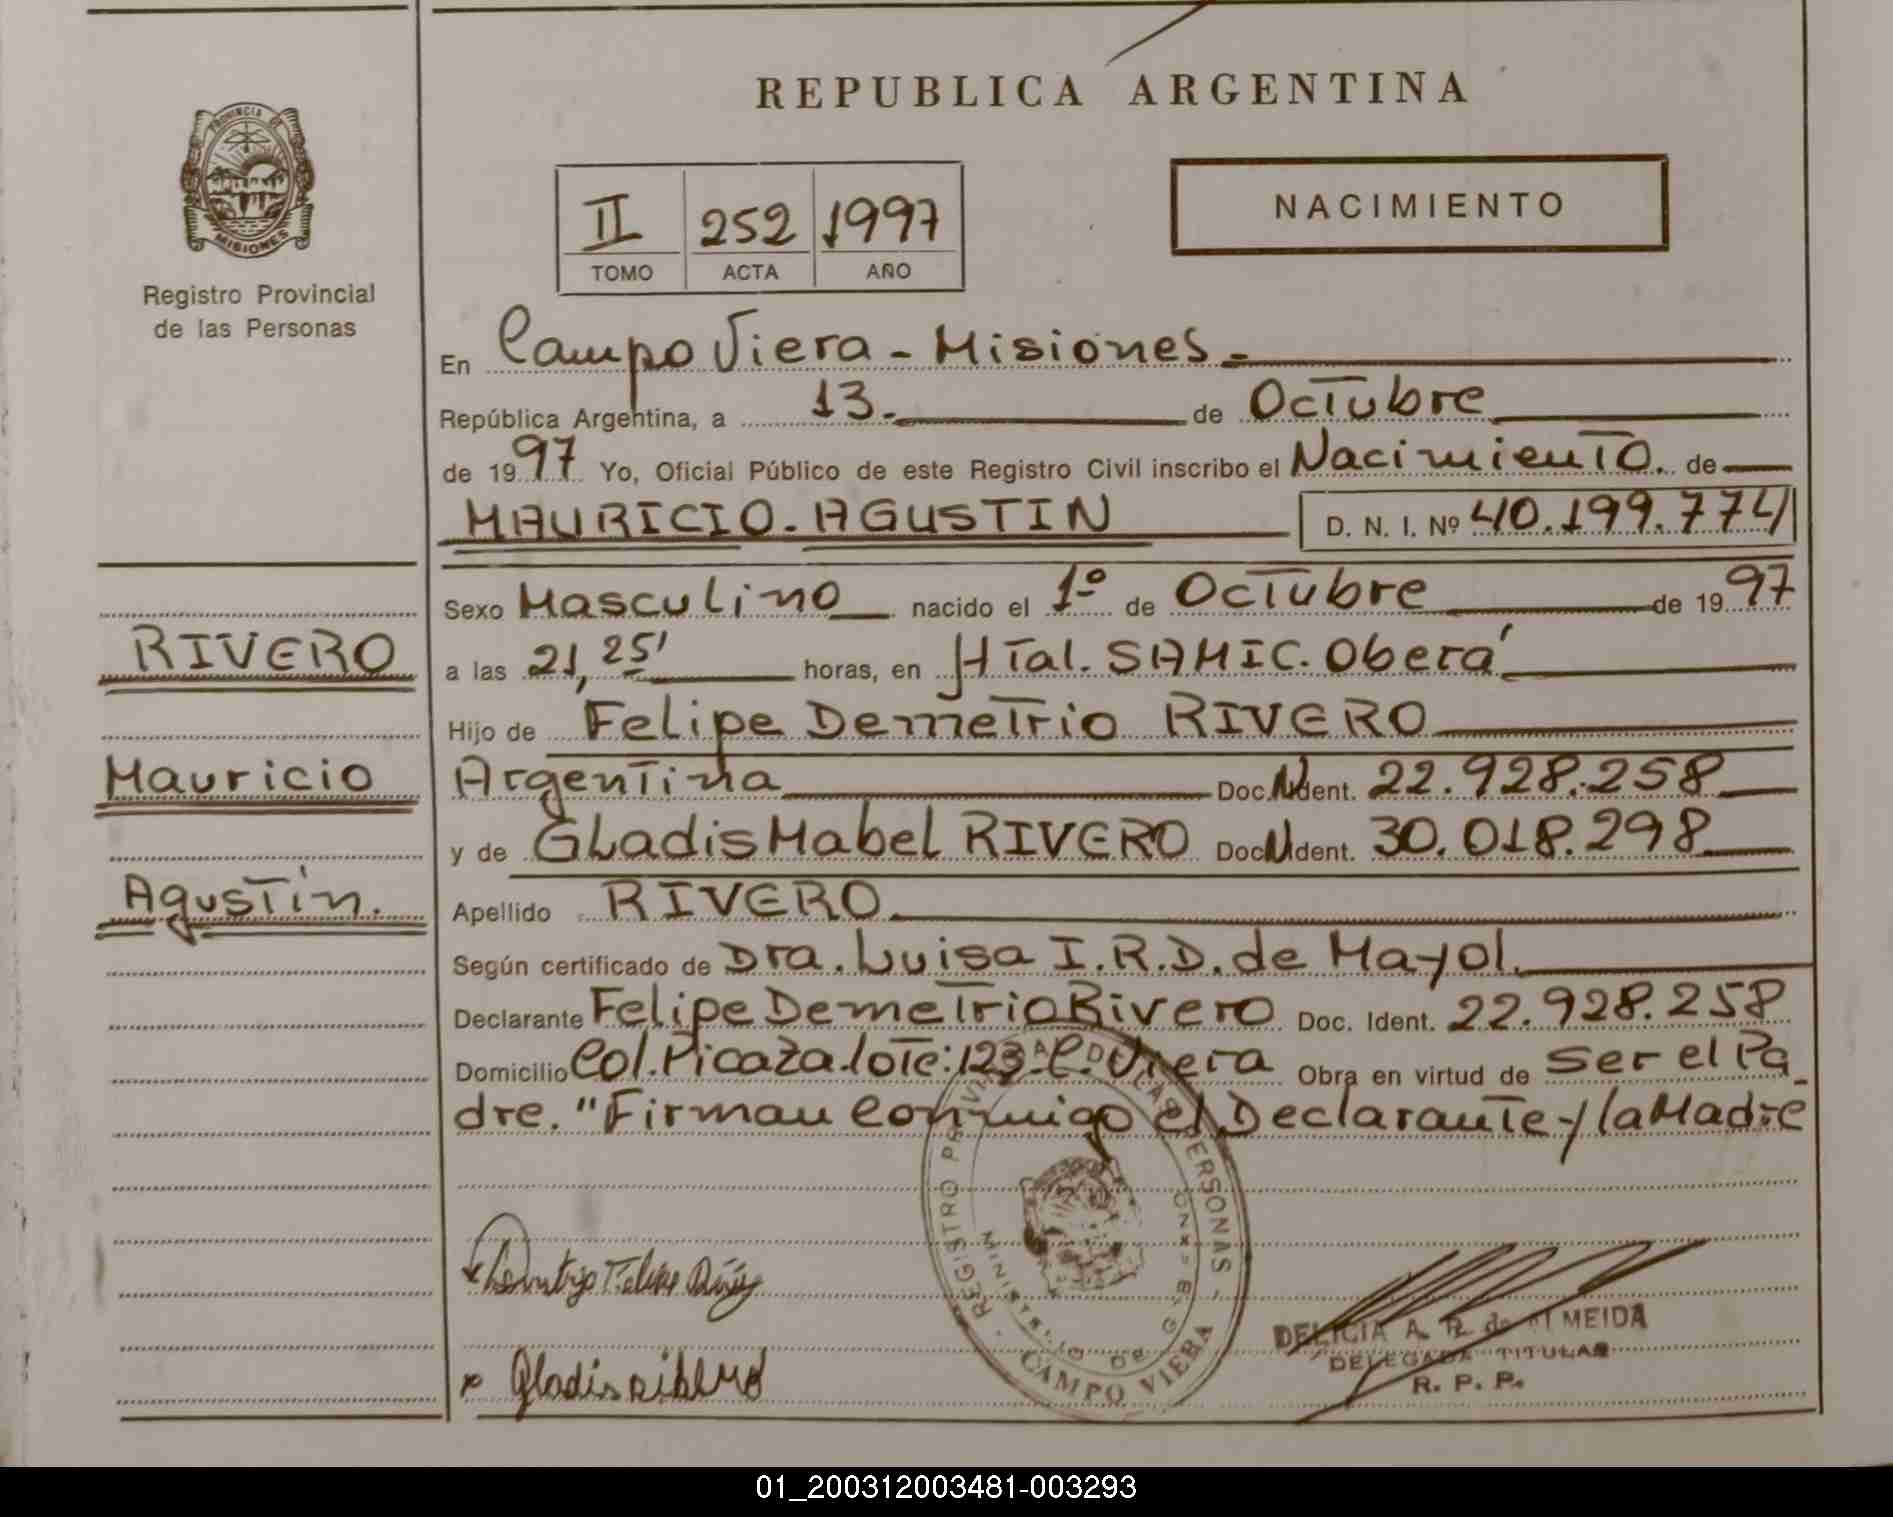 REPUBLICA ARGENTINA
PROVINCIA DE
MISIONES
Registro Provincial
de las Personas
II 252 1997
TOMO ACTA AÑO
NACIMIENTO
En Campo Viera - Misiones.-
República Argentina, a 13. de Octubre
de 1997 Yo, Oficial Público de este Registro Civil inscribo el Nacimiento. de
MAURICIO-AGUSTIN D. N. I. Nº 40.199.774
Sexo Masculino nacido el 1º de Octubre de 1997
RIVERO
a las 21,25' horas, en HTal. SAMIC. Oberá
Hijo de Felipe Demetrio RIVERO
Mauricio
Argentina Doc.N Ident. 22.928.258
y de Gladis Mabel RIVERO Doc N Ident. 30.018.298
Agustin.
Apellido RIVERO
Según certificado de Dra. Luisa I.R.D. de Mayol.
Declarante Felipe Demetrio Rivero Doc. Ident. 22.928.258
Domicilio Col. Picaza.lote:123-C.Viera Obra en virtud de Ser el Pa-
dre. "Firman conmigo el Declarante y la Madre
REGISTRO PERSONAS
CAMPO VIERA
DELICIA A. R. de ALMEIDA
DELEGADA TITULAR
R. P. P.
x Gladis
01_200312003481-003293